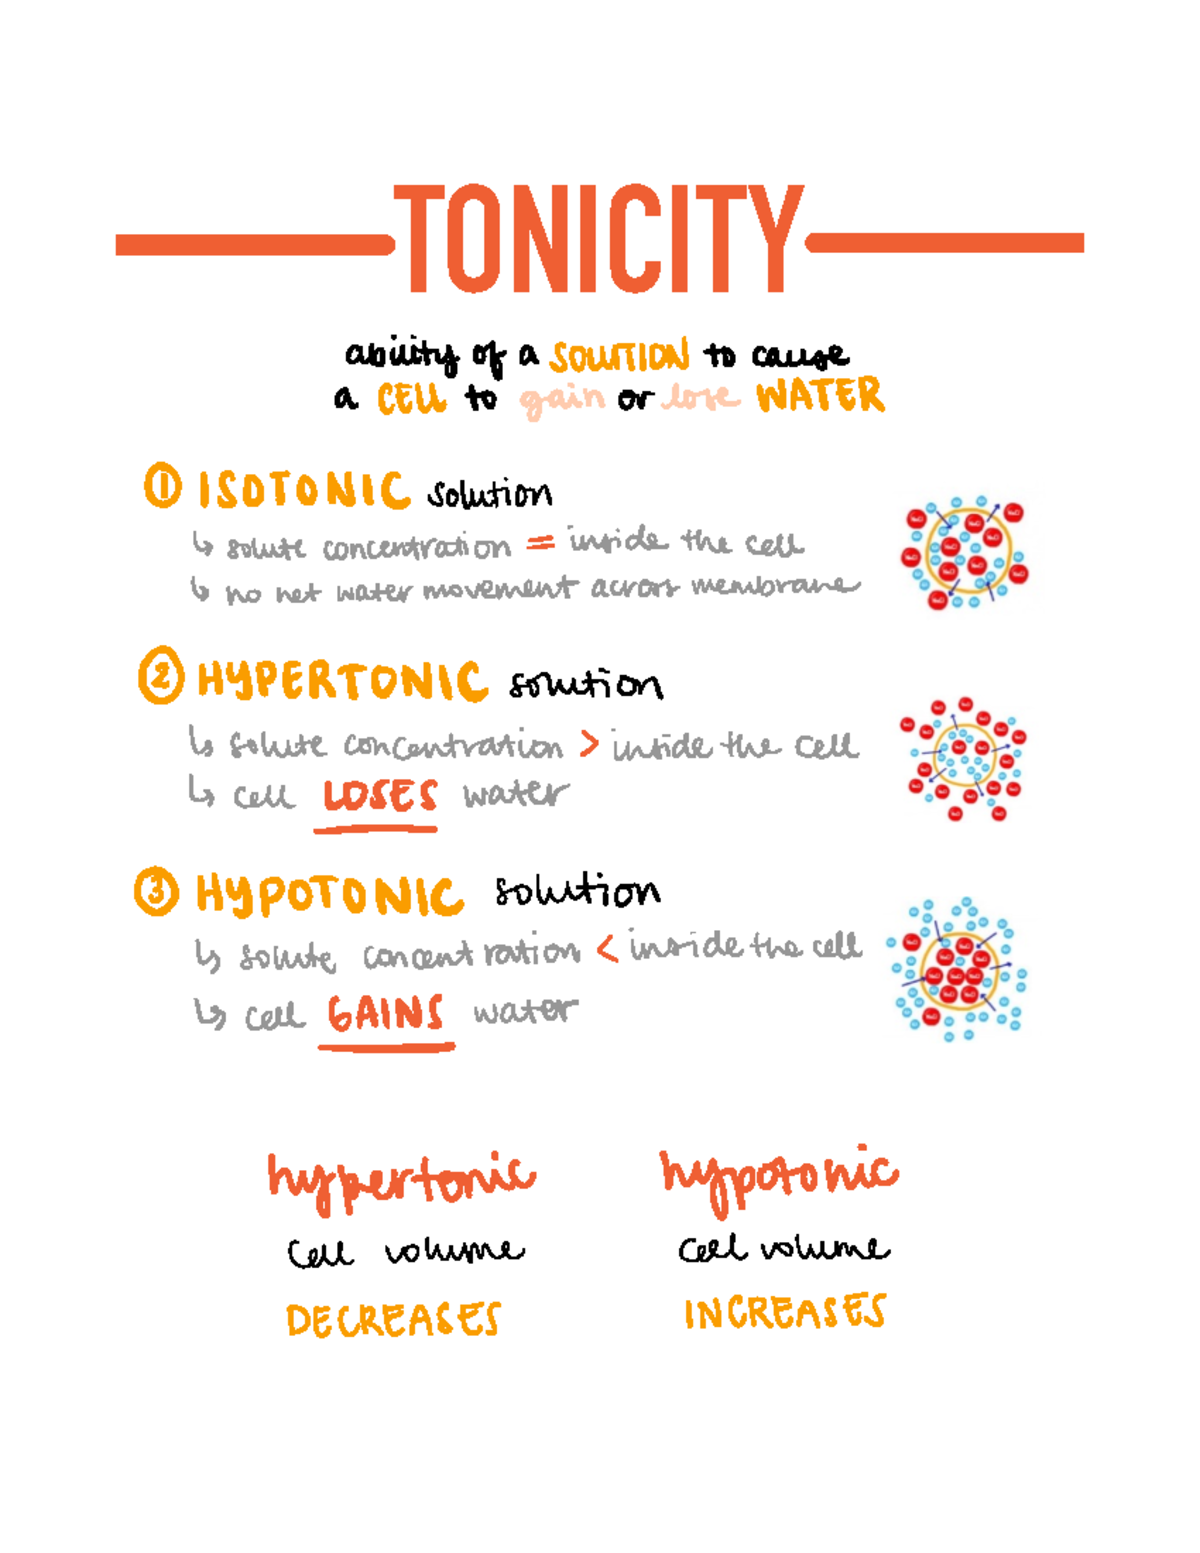 TONICITY
ability of a SOLUTION to cause
a CELL to gain or lose WATER
① ISOTONIC solution
↳ solute concentration = inside the cell
↳ no net water movement across membrane
② HYPERTONIC solution
↳ solute concentration > inside the cell
↳ cell LOSES water
③ HYPOTONIC solution
↳ solute concentration < inside the cell
↳ cell GAINS water
hypertonic hypotonic
cell volume cell volume
DECREASES INCREASES